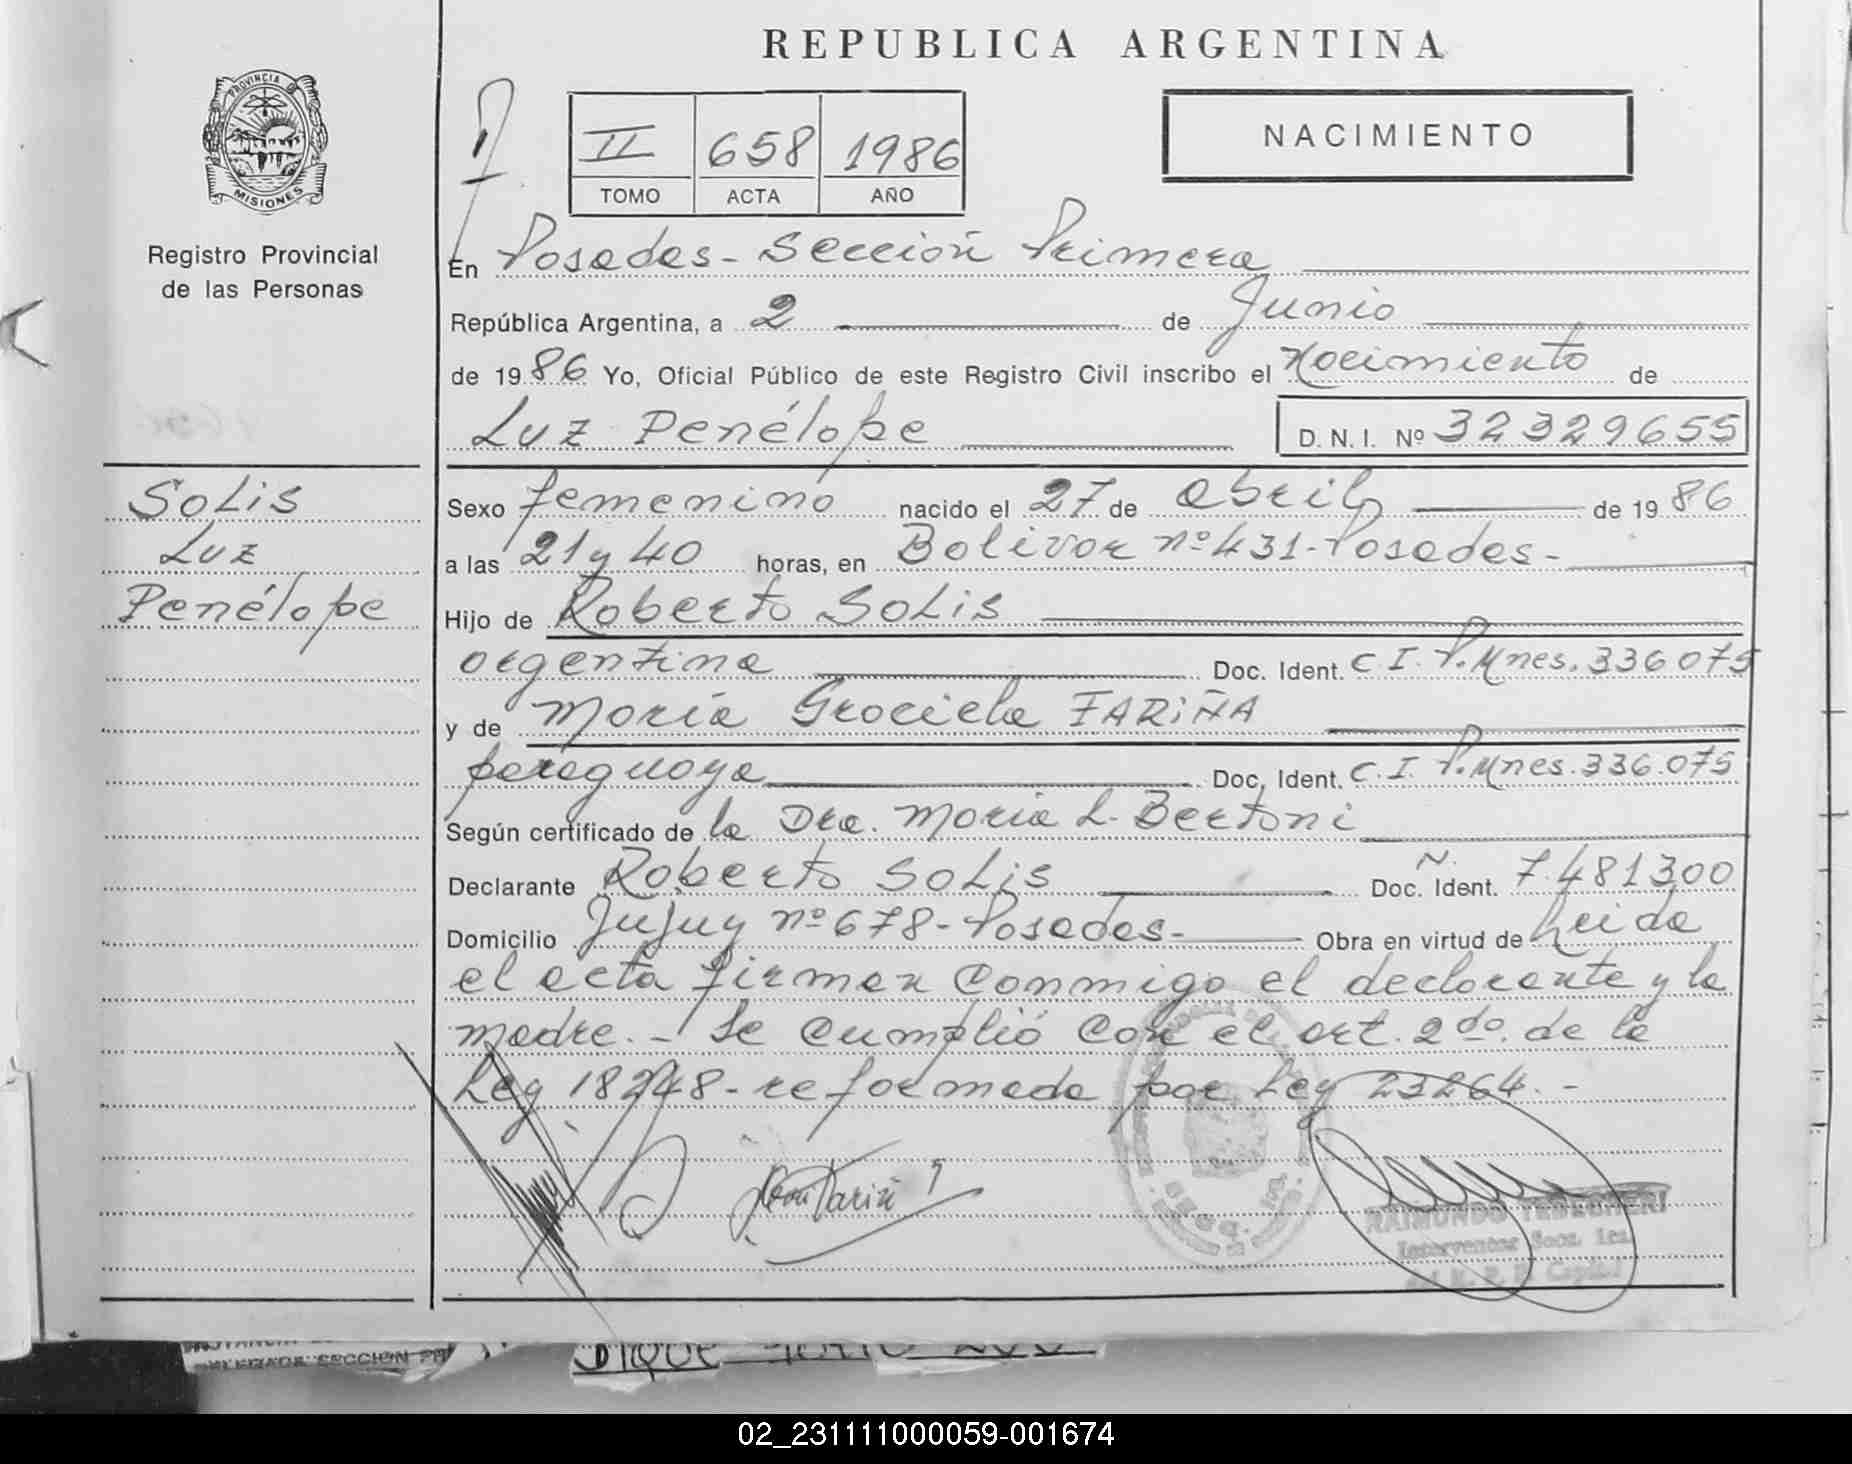 REPUBLICA ARGENTINA
PROVINCIA DE
MISIONES
Registro Provincial
de las Personas
II 658 1986
TOMO ACTA AÑO
NACIMIENTO
En Posadas - Sección Primera
República Argentina, a 2 de Junio
de 1986 Yo, Oficial Público de este Registro Civil inscribo el Nacimiento de
Luz Penélope D. N. I. Nº 32329655
SoLis
Luz
Penélope
Sexo femenino nacido el 27 de abril de 1986
a las 21 y 40 horas, en Bolivar nº 431 - Posadas -
Hijo de Roberto SoLis
argentina Doc. Ident. C. I. P. Mnes. 336075
y de María Graciela FARiÑA
paraguaya Doc. Ident. C. I. P. Mnes. 336.075
Según certificado de la Dra. María L. Bertoni
Declarante Roberto SoLis Doc. Ident. 7.481300
Domicilio Jujuy nº 678 - Posadas - Obra en virtud de Leida
el acta firman conmigo el declarante y la
madre. - Se cumplió con el art. 2do. de la
Ley 18248 - reformada por Ley 23264. -
RAIMUNDO
Interventor Secc. 1ra.
del R. P. P. Capital
SECCION
02_231111000059-001674